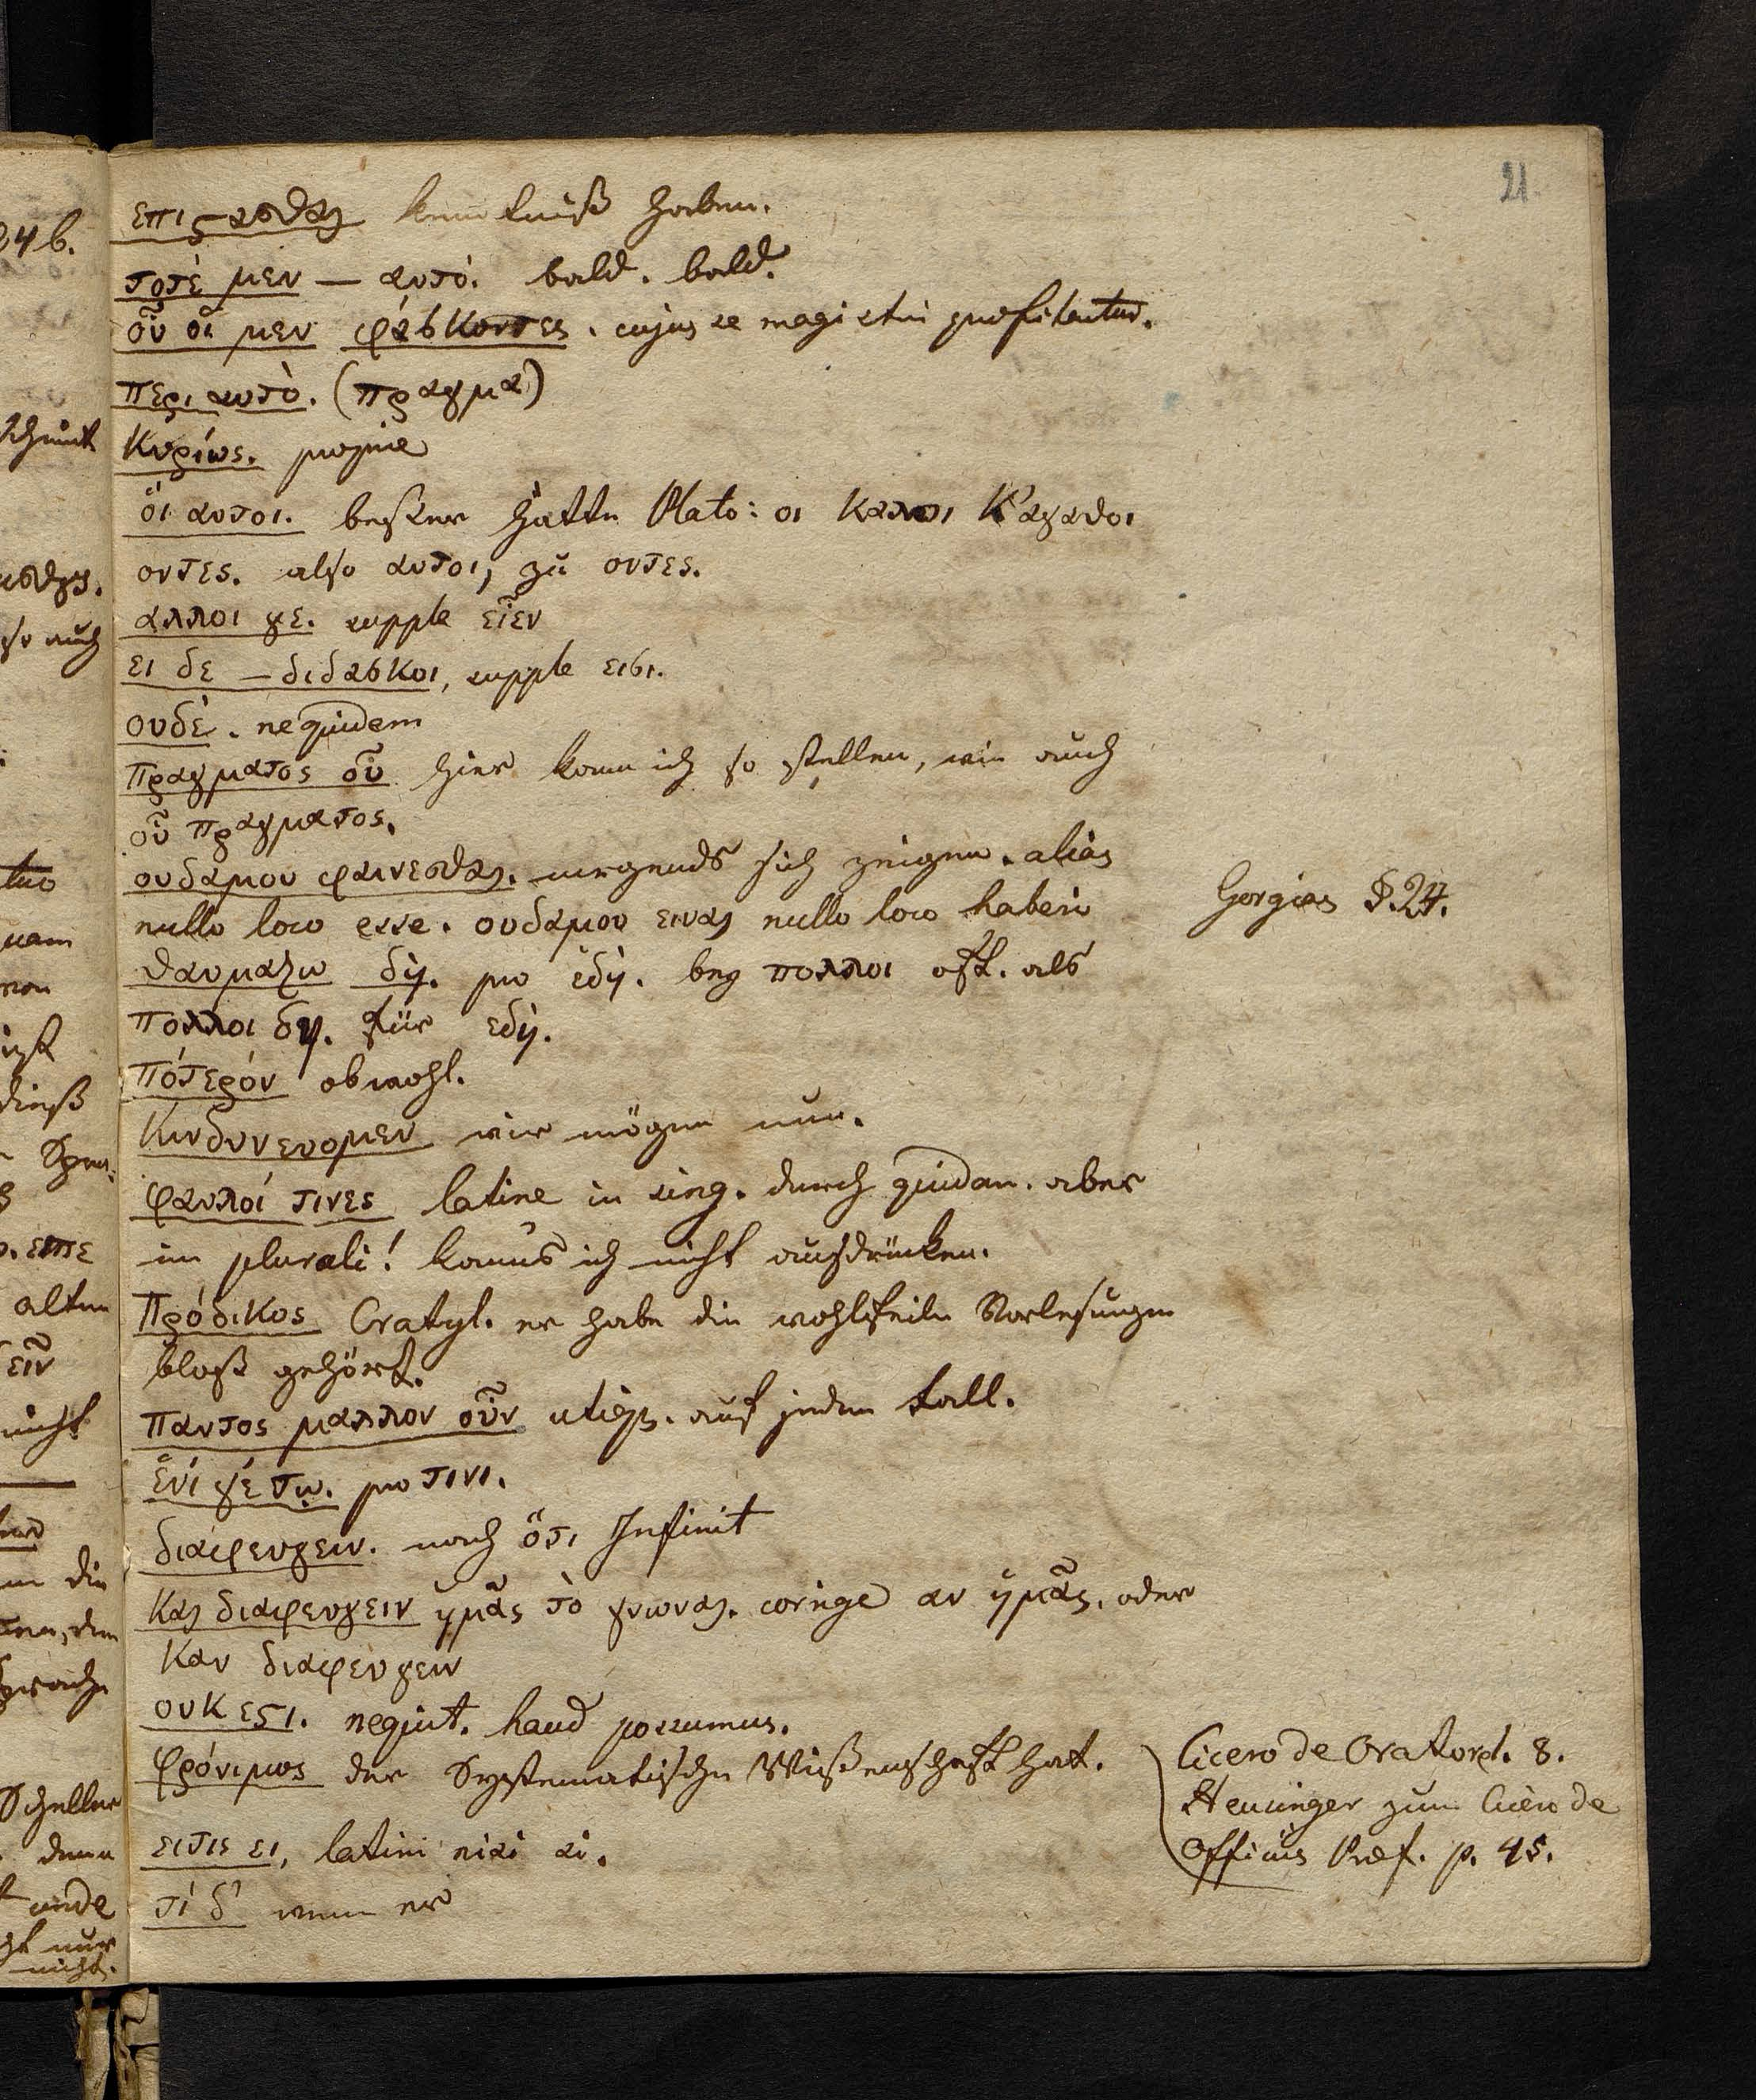 21
επιϛασθαι kenntniß haben.
ποτὲ μεν — αυτό. bald. bald.
οὗ οἵ μεν φάσκοντες. cujus se magistri profitentur.
περι αυτὸ. (πραγμα)
Κυρίως. proprie
ὅι αυτοι. beßer hätte Plato: οι καλοι κ'αγαθοι
οντες. also αυτοι, zu οντες.
αλλοι γε. supple εἶεν
ει δε — διδασκοι, supple εισι.
ουδέ. ne quidem
πραγματος οὗ hier kann ich so stellen, wie auch
οὗ πραγματος.
ουδαμου φαινεσθαι. nirgends sich zeigen. alias
nullo loco esse. ουδαμου ειναι nullo loco haberi
Gorgias §. 24.
θαυμαζω δὴ. pro ἐδὴ. bey πολλοι oft. als
πολλοι δη. für εδὴ.
πότερόν obwohl.
Κινδυνευομεν wir mögen nun.
φαυλοί τινες latine in sing. durch quidam. aber
im plurali! kanns ich nicht ausdrücken.
Πρόδικος Cratyl. er habe die wohlfeile Vorlesungen
bloß gehört.
παντος μαλλον οὖν utique. auf jeden Fall.
ἑνί γέ τῳ. pro τινι.
διαφευγειν. nach ὅτι Infinit
Και διαφευγειν ἡμᾶς τὸ γνωναι. corrige αν ἡμᾶς. oder
καν διαφευγειν
ουκ εϛι. nequit. haud possumus.
φρόνιμος der Systematische Wißenschaft hat.
Cicero de Orator. l. 8.
Heusinger zum Cicero de
Officiis Præf. p. 45.
ειτις ει, latini nisi si.
τί δ' wenn er